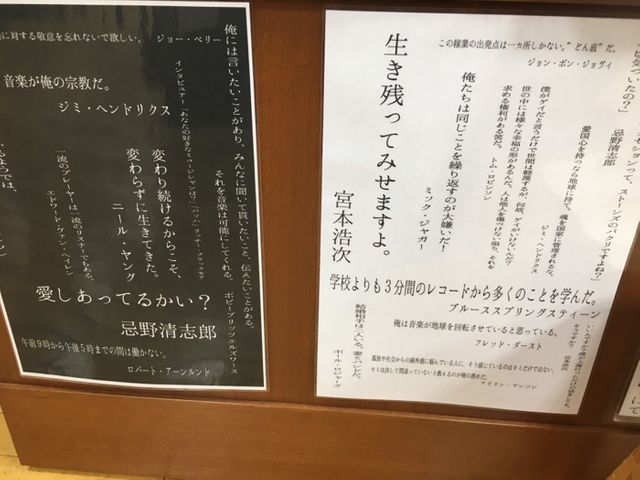 に対する敬意を忘れないで欲しい。 ジョー・ペリー
音楽が俺の宗教だ。
ジミ・ヘンドリクス
俺には言いたいことがあり、みんなに聞いて貰いたいこと、伝えたいことがある。
それを音楽は可能にしてくれる。
ボビー
インタビュアー「あなたの好きなミュージシャンは?」「バッハ」リッチー・ブラックモア
変わり続けるからこそ、
変わらずに生きてきた。
ニール・ヤング
一流のプレーヤーは一流のリスナーでもある。
エドワード・ヴァン・ヘイレン
愛しあってるかい?
忌野清志郎
午前9時から午後5時までの間は働かない。
ロバート・アーンルンド
この稼業の出発点は一カ所しかない。“どん底”だ。
ジョン・ボン・ジョヴィ
生き残ってみせますよ。
宮本浩次
俺たちは同じことを繰り返すのが大嫌いだ!
ミック・ジャガー
僕がゲイだと言っただけで世間は軽蔑するが、何故、ゲイがいけないんだ?
世の中には様々な幸福の形があるんだ。人は他人を傷つけない限り、それを
求める権利がある筈だ。 トム・ロビンソン
愛国心を持つなら地球に持て。魂を国家に管理されるな。
ジミ・ヘンドリクス
学校よりも3分間のレコードから多くのことを学んだ。
ブルーススプリングスティーン
俺は音楽が地球を回転させていると思っている。
フレッド・ダースト
結婚相手は二人いる。妻とバンドだ。
ポール・ロジャース
孤独や社会からの疎外感に悩んでいる人に、そう感じているのはキミだけではない、
キミは決して間違っていないと教えるのが俺の務めだ。
マリリン・マンソン
モーションって、ストーンズのパクリですよね?」
忌野清志郎